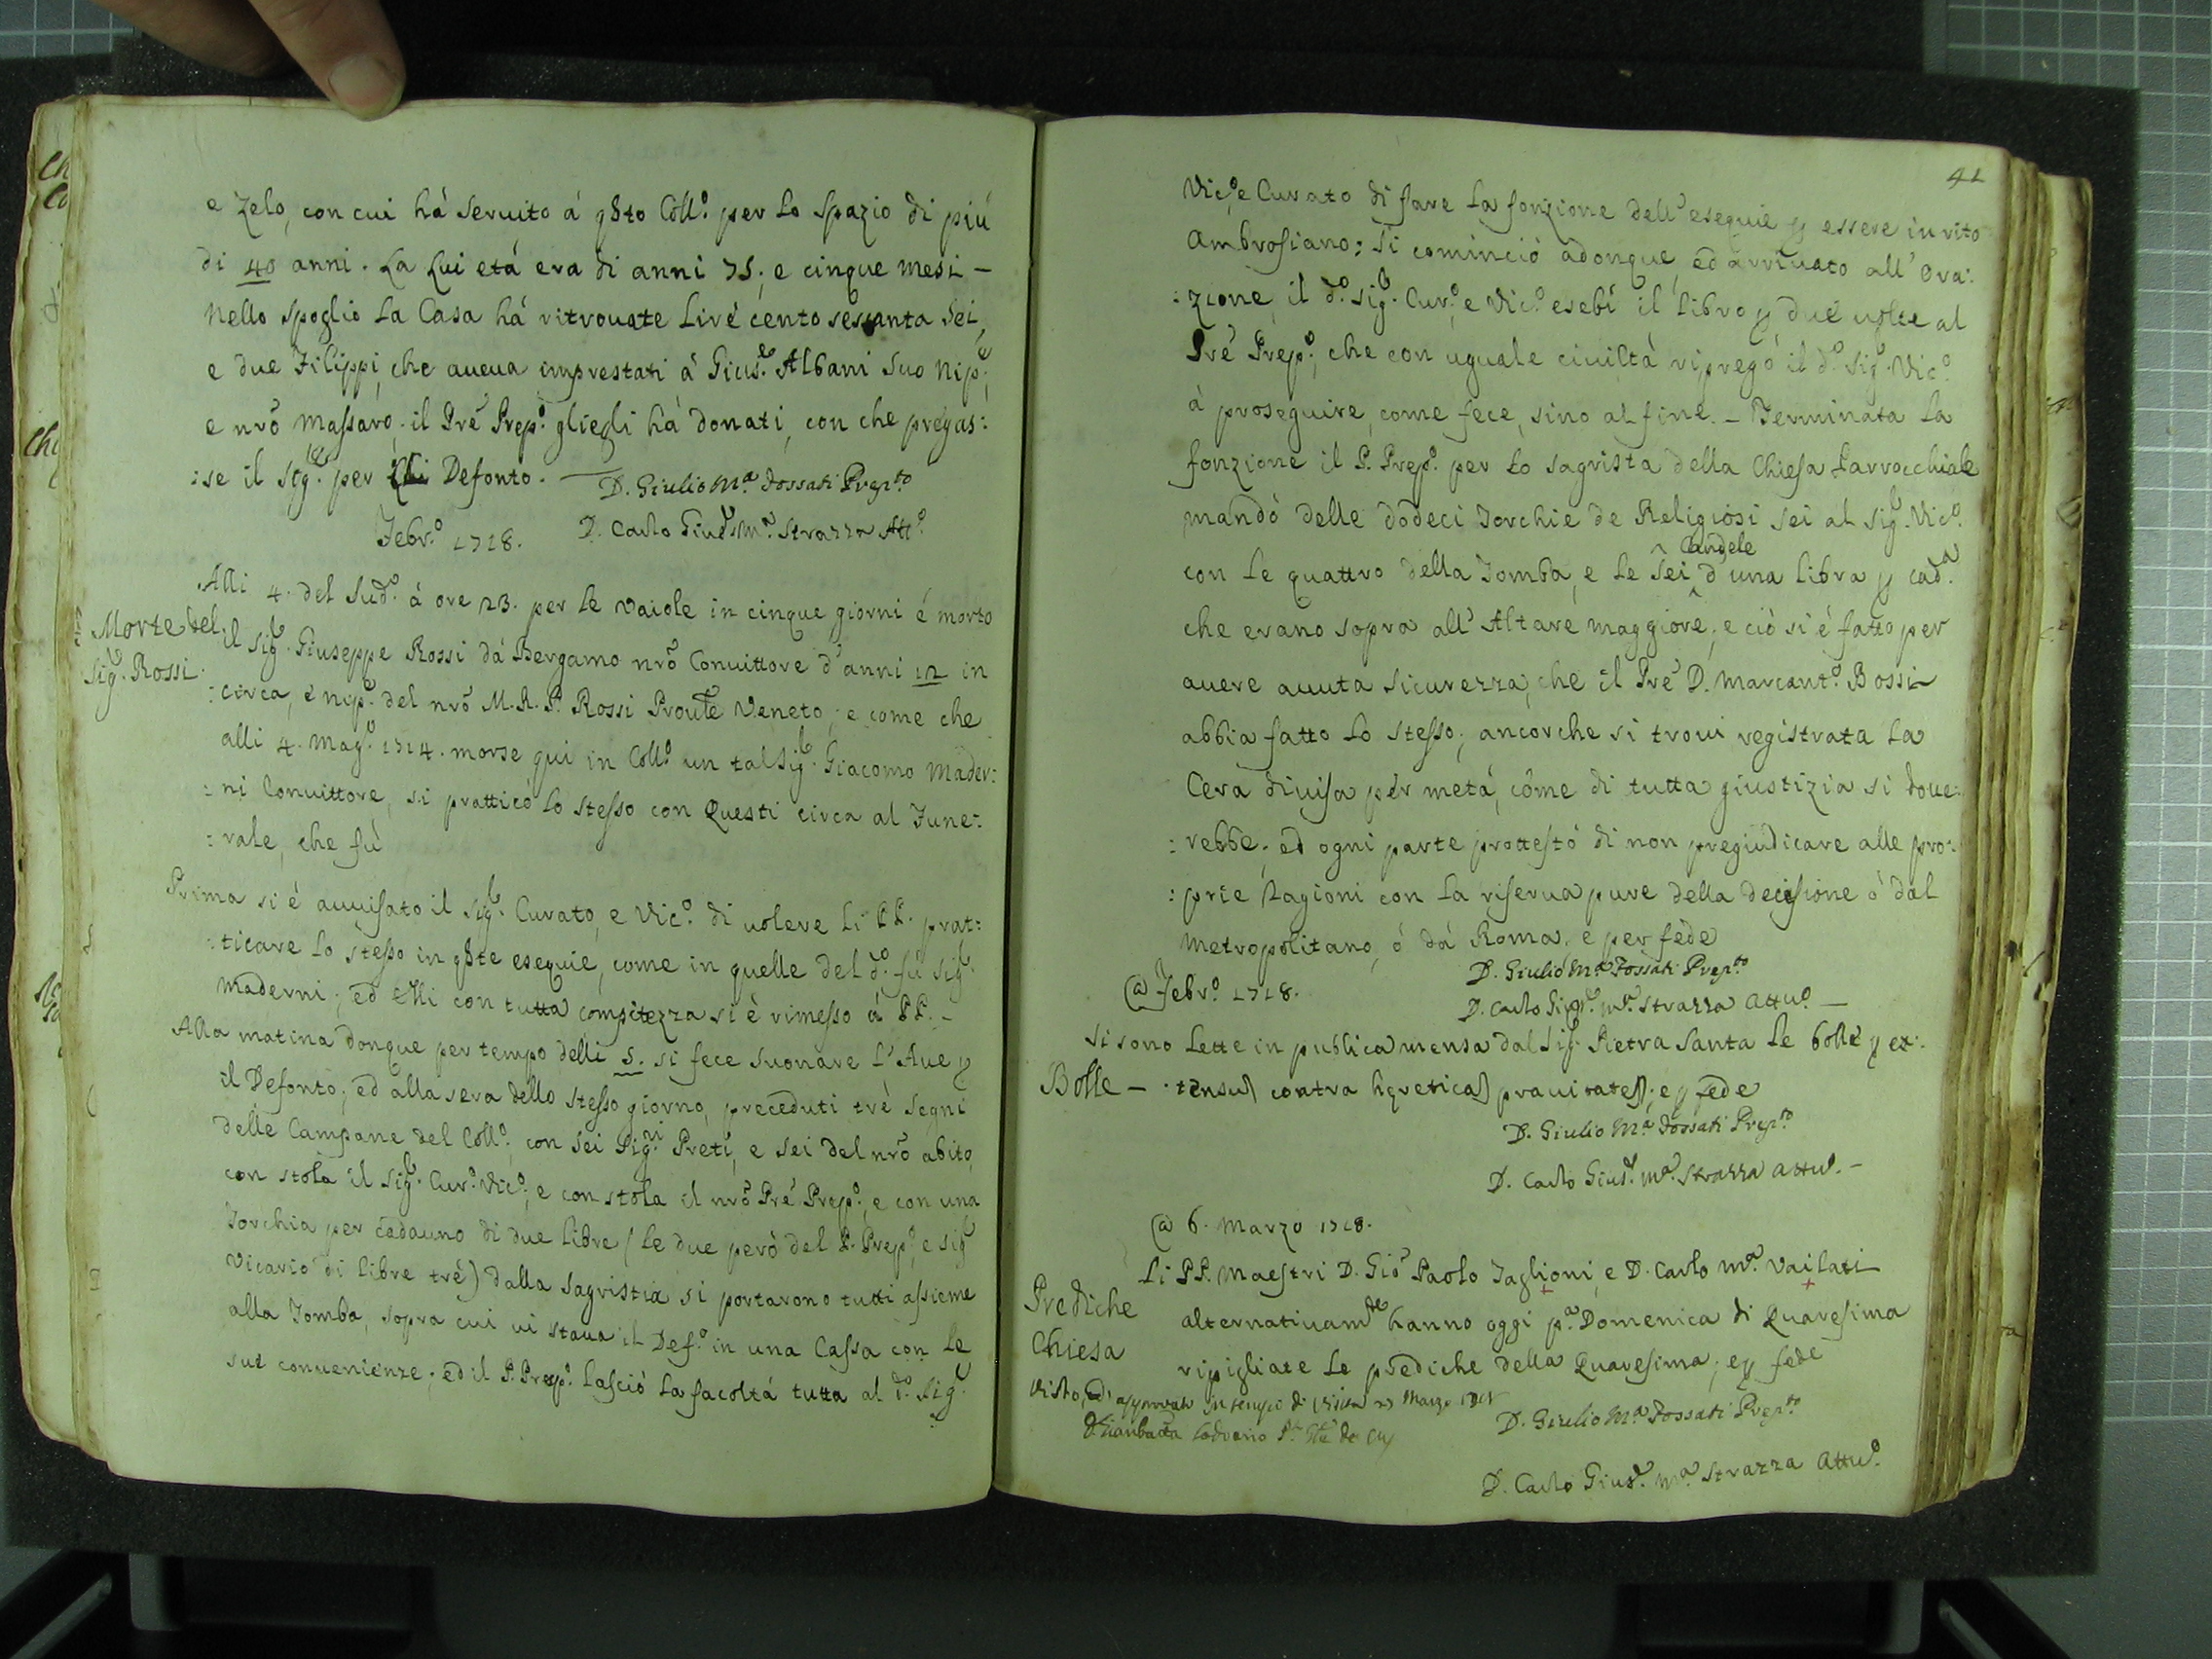 e Zelo, con cui há seruito á qsto Coll.o per lo spazio di piú
di 40 anni. La Lui etá era di anni 75; e cinque mesi -
Nello spoglio la Casa há ritrouate Liré cento sessanta sei,
e due Filippi, che aueua imprestati á Gius.e Albani suo Nip.e,
e nrõ massaro; il Pre Prep.o glieli há donati, con che pregas:
:se il Sig.re per Defonto. -
D. Giulio M.a Fossati Prep.to
D. Carlo Gius.e M.a Strazza Att.o
Febr.o 1718.
Morte del
Sig.r Rossi.
Alli 4. del Sud.o á ore 23. per le Vaiole in cinque giorni é morto
il Sig.r Giuseppe Rossi dá Bergamo nrõ Conuittore d'anni 12 in
:circa, é nip.e del nrõ M.R.P. Rossi Prou.le Veneto; e come che
alli 4. Mag.o 1714. morse qui in Coll.o un tal Sig.r Giacomo Mader:
:ni Conuittore, si pratticó lo stesso con Questi circa al Fune:
:rale, che fú
Prima si é auuisato il Sig.r Curato, e Vic.o di uolere li PP. prat:
:ticare lo stesso in qste esequie, come in quelle del d.o fú Sig.r
Maderni; ed Elli con tutta compitezza si é rimesso á PP. -
Alla matina donque per tempo delli 5. si fece suonare l'Aue p
il Defonto; ed alla sera dello stesso giorno, preceduti tré segni
delle Campane del Coll.o, con sei Sig.ri Preti, e sei del nrõ abito,
con stola il Sig.r Cur.o Vic.o, e con stola il nrõ Pré Prep.o, e con una
Torchia per cadauno di due libre (le due peró del P. Prep.o, e Sig.r
Vicario di libre tré) dalla sagristia si portarono tutti assieme
alla Tomba, sopra cui ui staua il Def.o in una Cassa con le
sue conuenienze; ed il P. Prep.o lasció la facoltá tutta al d.o Sig.r
41
Vic.o e Curato di fare la fonzione dell'esequie p essere in rito
Ambrosiano: Si cominció adonque, ed arriuato all'Ora:
:zione, il d.o Sig.r Cur.o, e Vic.o esebí il libro p due uolte al
Pré Prep.o, che con uguale ciuiltá ripregó il d.o Sig.r Vic.o
á proseguire, come fece, sino al fine. - Terminata la
fonzione il P. Prep.o per lo sagrista della Chiesa Parrocchiale
mandó delle dodeci Torchie de Religiosi sei al Sig.r Vic.o
con le quattro della Tomba, e le sei Candele d'una libra p cad.a
che erano sopra all'Altare maggiore; e ció si é fatto per
auere auuta sicurezza, che il Pré D. Marcant.o Bossi
abbia fatto lo stesso; ancorche si troui registrata la
Cera diuisa per metá, come di tutta giustizia si doue:
:rebbe; ed ogni parte prottestó di non pregiudicare alle pro:
:prie Ragioni con la riserua pure della decisione ó dal
Metropolitano, ó dá Roma, e per fede
D. Giulio M.a Fossati Prep.to
@ Febr.o 1718.
D. Carlo Gius.e M.a Strazza Attu.o -
Si sono lette in publica mensa dal Sig.r Pietra Santa le bolle p ex:
Bolle - :tensu contra hereticã prauitatẽ; e p fede
D. Giulio M.a Fossati Prep.to
D. Carlo Gius.e M.a Strazza Attu.o -
@ 6. Marzo 1718.
Prediche
Chiesa
Li PP. Maestri D. Gio Paolo Taglioni, e D. Carlo M.a Vailati
alternatiuam.te hanno oggi p.a Domenica di Quaresima
ripigliate le prediche della Quaresima; e p fede
Visto, ed approuato in tempo di Visita Marzo
D. Giulio M.a Fossati Prep.to
D. Carlo Gius.e M.a Strazza Attu.o